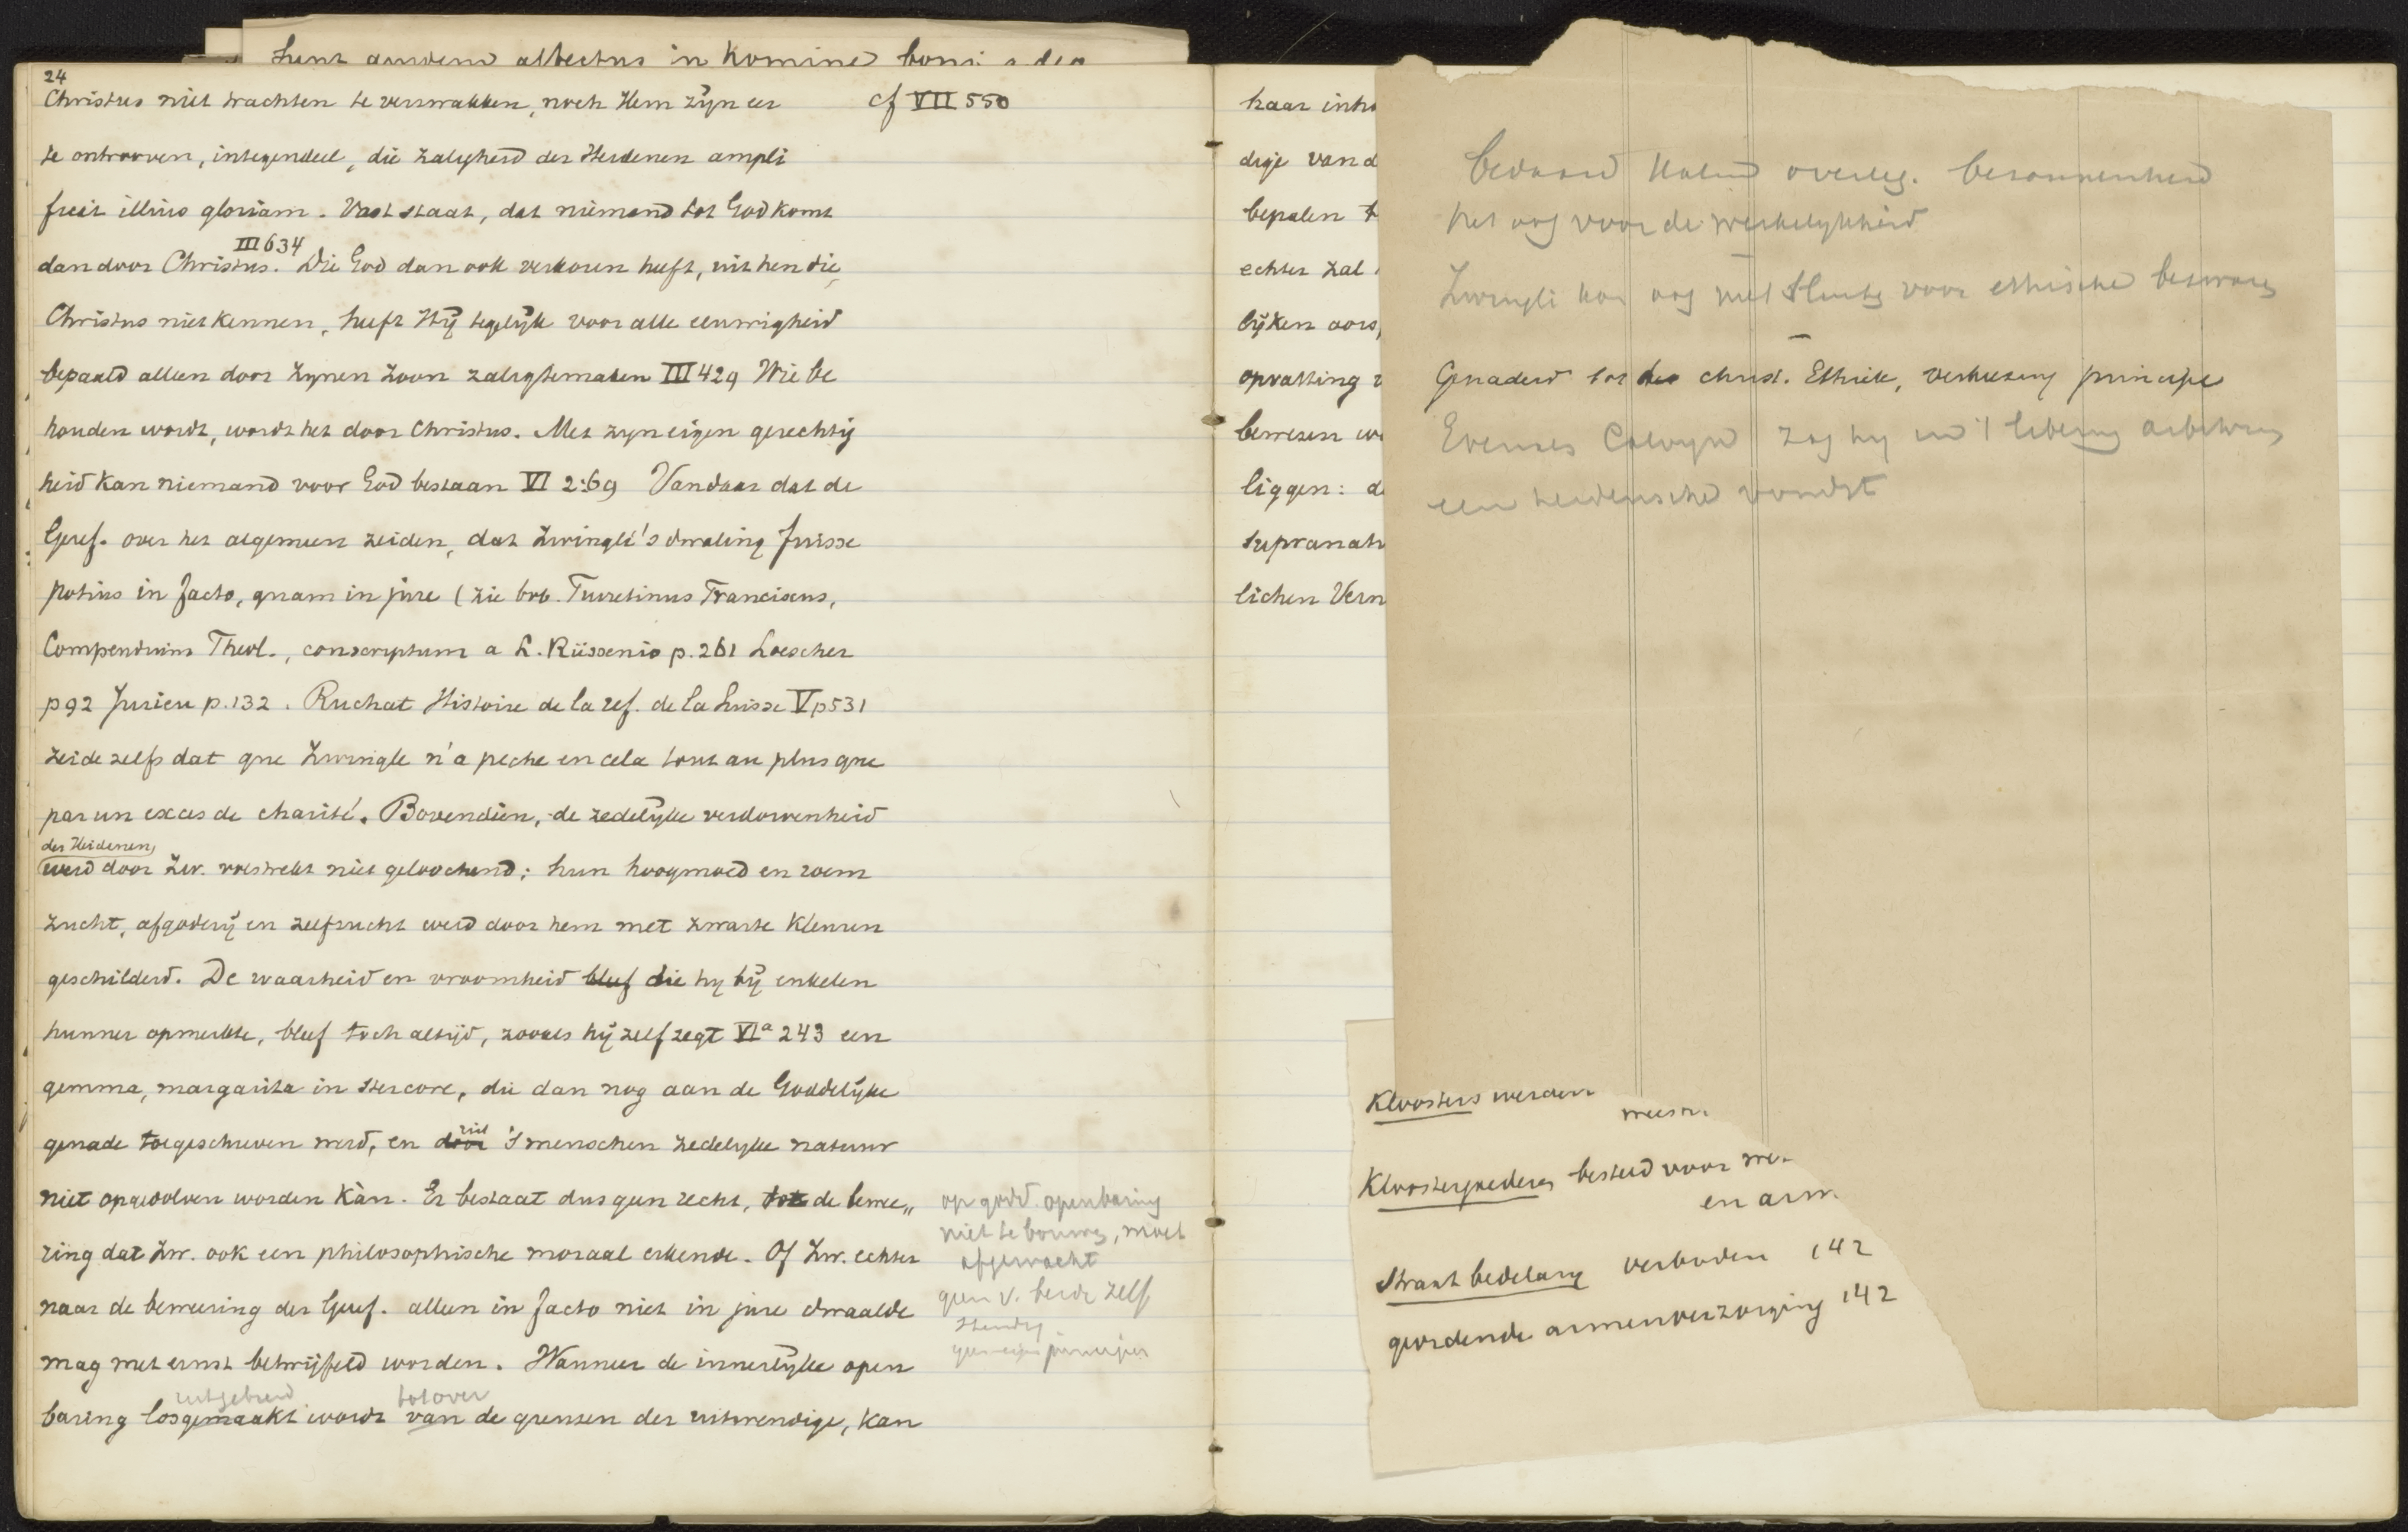 sunt quidem affectus in homine boni
24
Christus niet trachten te verzwakken, noch Hem zijn eer cf VII 550
te ontrooven, integendeel, die zaligheid der Heidenen ampli
ficat illius gloriam. Vast staat, dat niemand tot God komt
III 634
dan door Christus. Die God dan ook verkoren heeft, uit hen die,
Christus niet kennen, heeft Hij tegelijk voor alle eeuwigheid
bepaald alleen door zijnen Zoon zalig te maken III 429 Wie be
houden wordt, wordt het door Christus. Met zijn eigen gerechtig
heid kan niemand voor God bestaan VI 2:69 Vandaar dat de
Geref. over het algemeen zeiden, dat Zwingli's dwaling fuisse
potius in facto, quam in jure (zie bvb. Turretinus Franciscus,
Compendium Theol., conscriptum a L. Riissenio p. 261 Loescher
p 92 Jurieu p. 132. Ruchat Histoire de la ref. de la Suisse V p 531
zeide zelfs dat que Zwingle n'a peche en cela tout au plus que
par un exces de charité. Bovendien, de zedelijke verdorvenheid
der Heidenen,
werd door Zw. volstrekt niet geloochend; hun hoogmoed en roem
zucht, afgoderij en zelfzucht werd door hem met zwarte kleuren
geschilderd. De waarheid en vroomheid bleef die hij bij enkelen
hunner opmerkte, bleef toch altijd, zooals hij zelf zegt VIa 243 een
gemma, margarita in stercore, die dan nog aan de Goddelijke
uit
genade toegeschreven werd, en door 's menschen zedelijke natuur
niet opgedolven worden kàn. Er bestaat dus geen recht, tot de bewee„
ring dat Zw. ook een philosophische moraal erkende. Of Zw. echter
naar de bewering der Geref. alleen in facto niet in jure dwaalde
mag met ernst betwijfeld worden. Wanneer de innerlijke open
uitgebreid tot over
baring losgemaakt wordt van de grenzen der uitwendige, kan
op godd. openbaring
niet te bouwen, moet
afgewacht
geen v. beide zelf
standig
geen eigen principes
haar inho
dige van d
bepalen t
echter zal
lijken oors
opvatting v
bewezen we
liggen: d
supranatu
lichen Vern
bedaard kalm overleg. bezonnenheid
het oog voor de werkelijkheid
Zwingli had oog niet slechts voor ethische bezwaren
Genadeid tot des christ. Ethiek, verkiezing principe
Evenals Calvijn zag hij in 't liberum arbitrium
een heidensche vondst
Kloosters werden
Kloostergoederen besteed voor we
en arm
Straat bedelary verboden 142
geordende armenverzorging 142